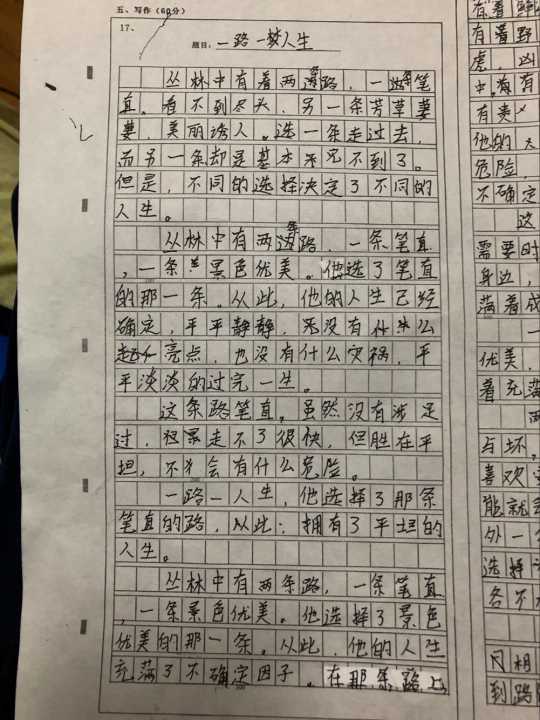 五、写作（60分）
17、
题目：一路一人生
丛林中有着两条路，一条笔
直。看不到尽头，另一条芳草萋
萋，美丽诱人。选一条走过去，
而另一条却是基本来见不到了。
但是，不同的选择决定了不同的
人生。
丛林中有两条路，一条笔直
，一条景色优美。他选了笔直
的那一条。从此，他的人生已经
确定，平平静静，既没有什么
亮点，也没有什么灾祸，平
平淡淡的过完一生。
这条路笔直。虽然没有涉足
过，走不了很快，但胜在平
坦，不会有什么危险。
一路一人生，他选择了那条
笔直的路，从此：拥有了平坦的
人生。
丛林中有两条路，一条笔直
，一条景色优美。他选择了景色
优美的那一条。从此，他的人生
充满了不确定因子。在那条路上
有着
有着野
虎，凶
中，有
有卖
他的
危险，
不确定
这
需要时
身边，
满着成
一
优美，
着充满
两
与坏，
喜欢
能就会
外一
选择
各不
只相
到路